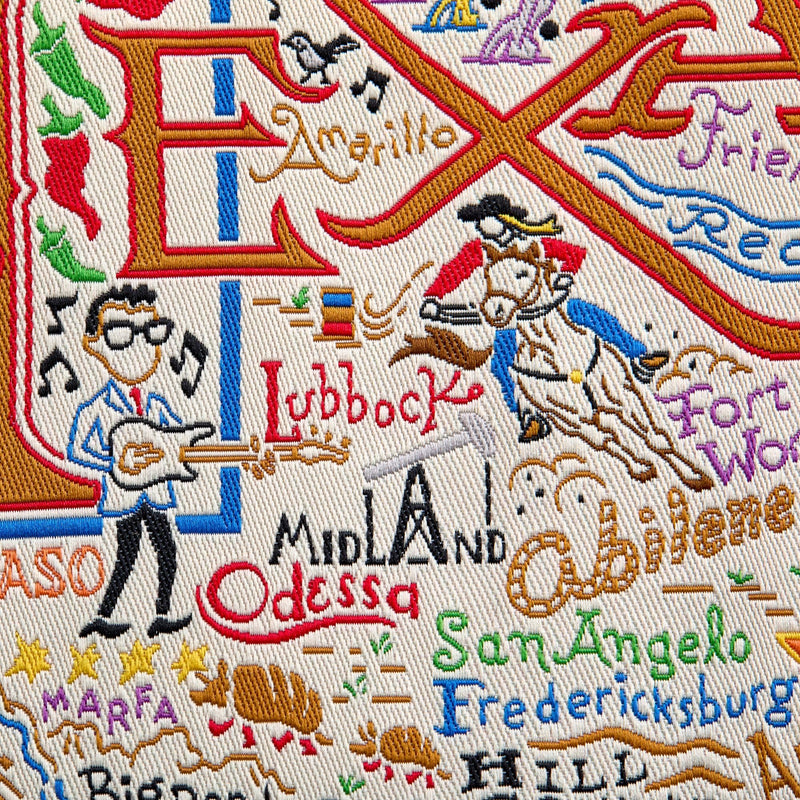 EXA
Amarillo
Frien
Rec
Lubbock
Fort
Wor
MIDLAND
Abilene
ASO
Odessa
San Angelo
MARFA
Fredericksburg
HILL